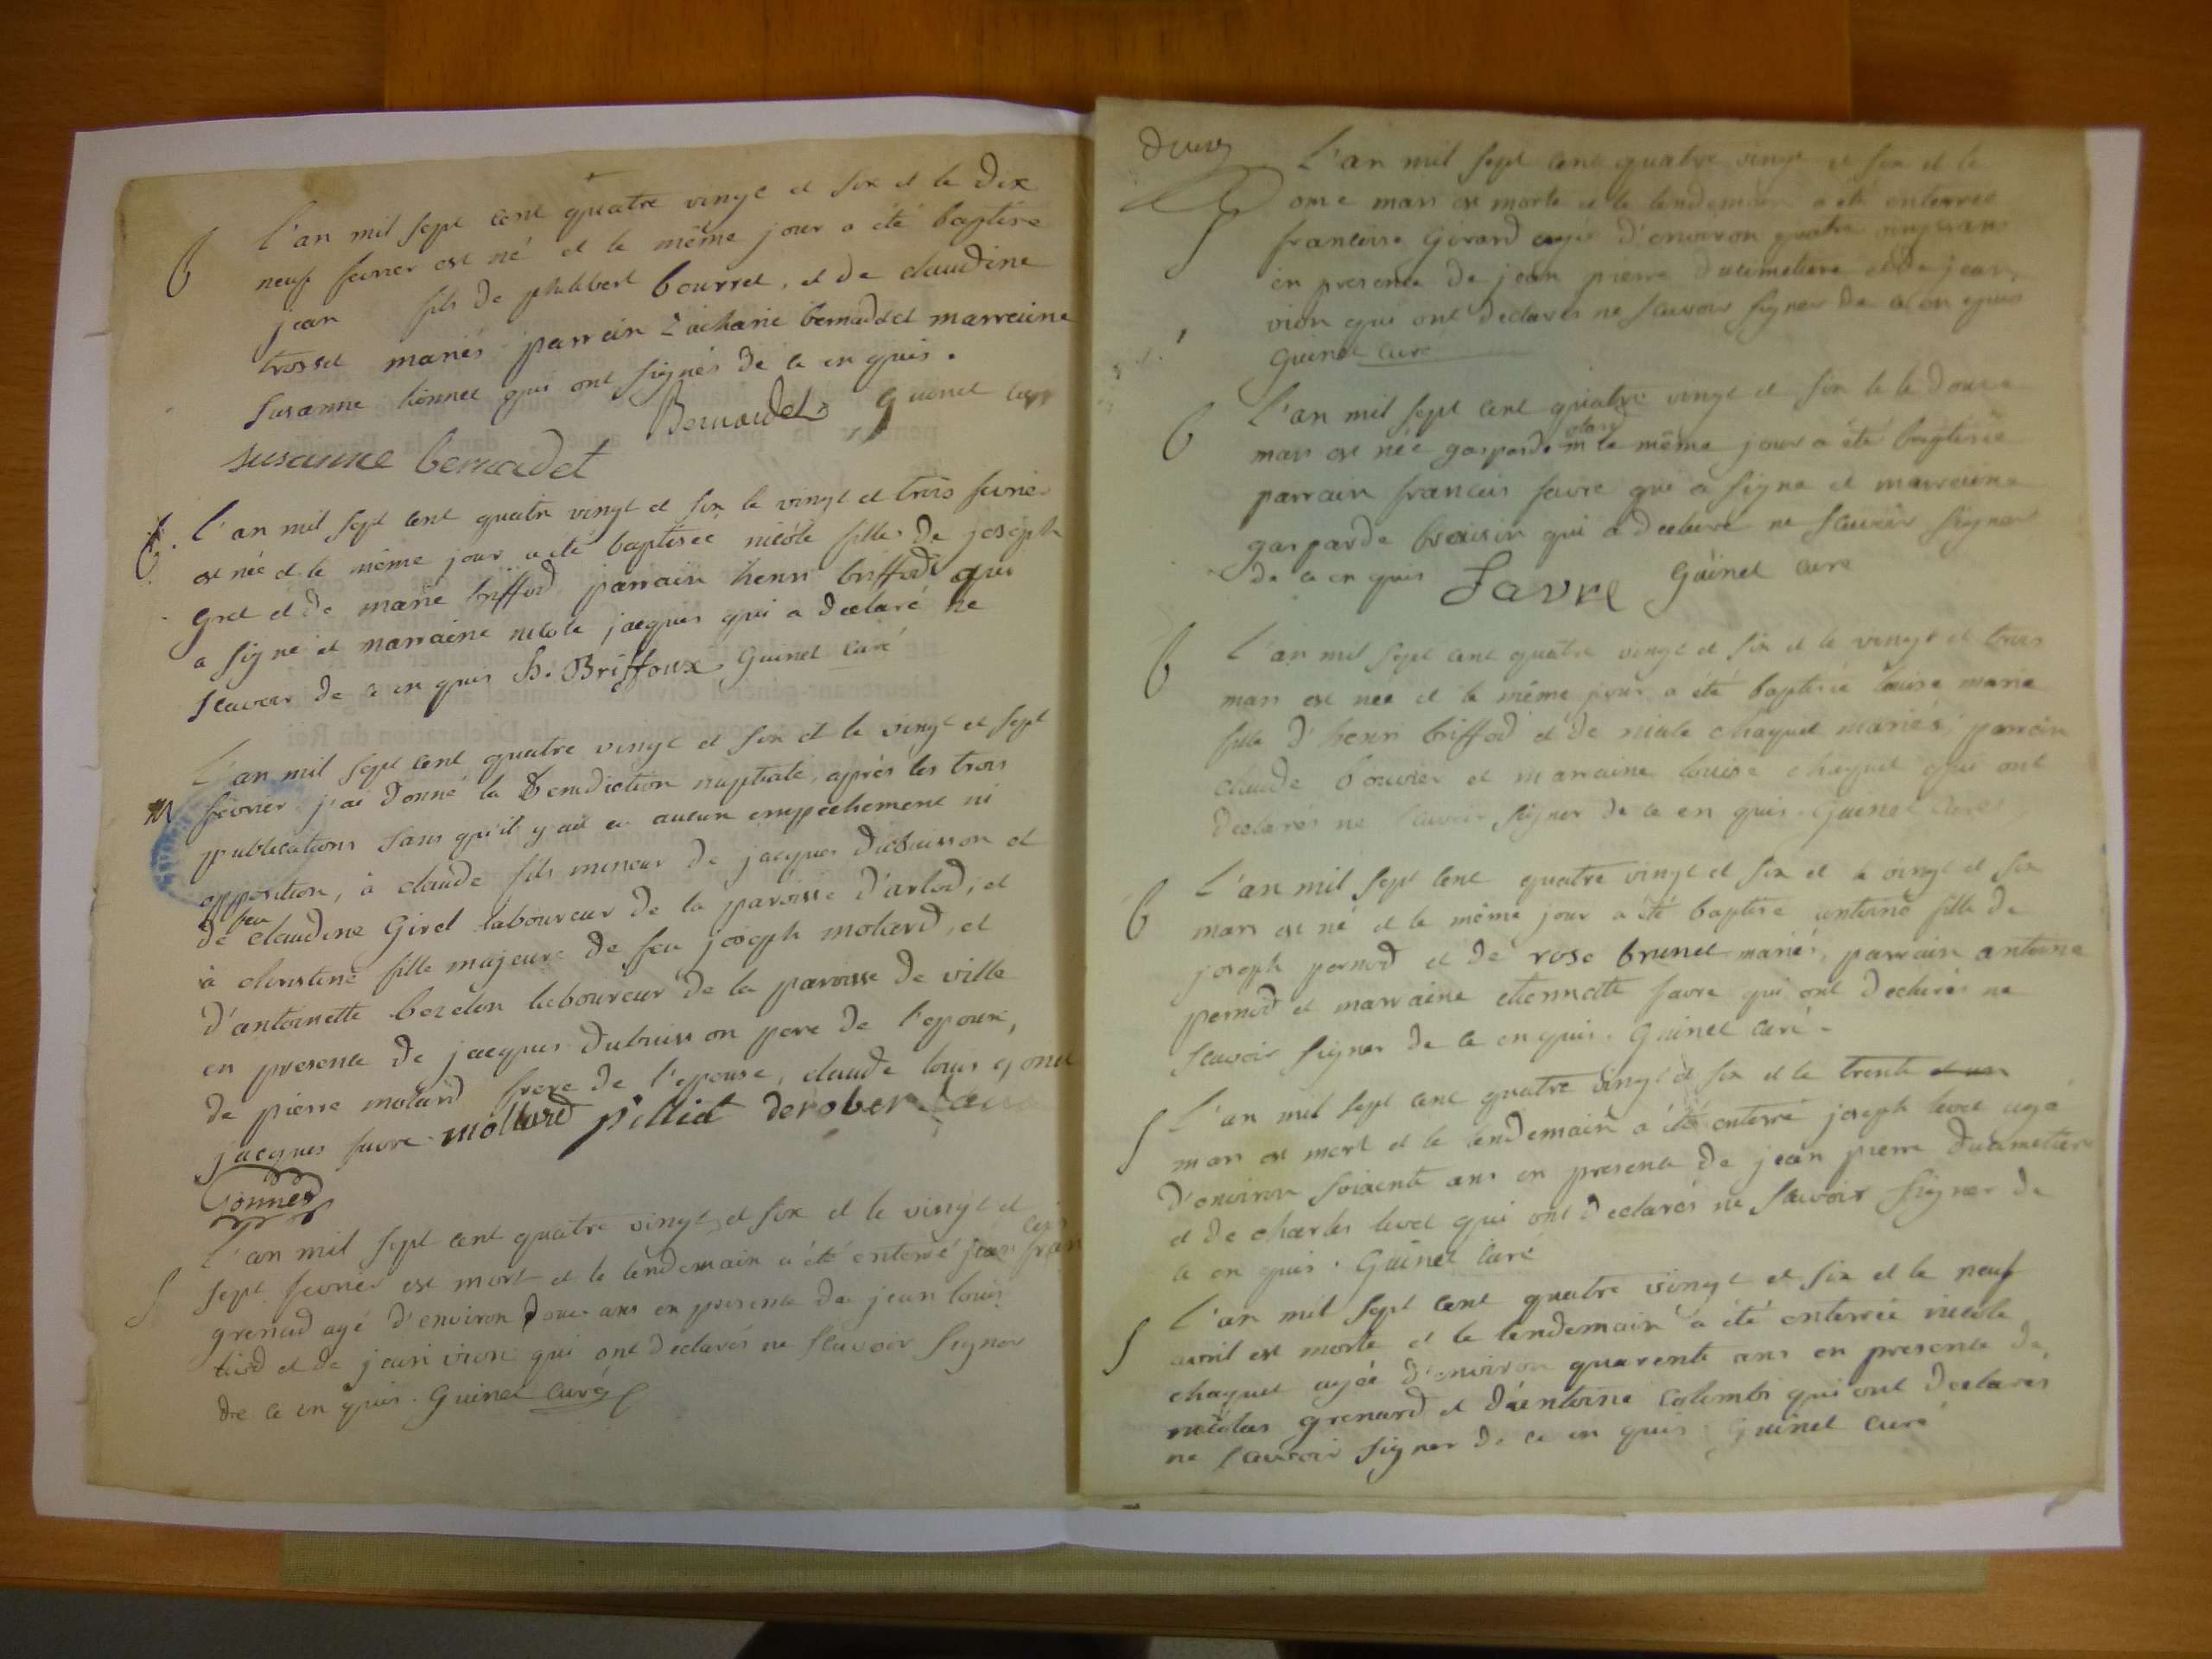 B
L'an mil sept cent quatre vingt et six et le dix
neuf fevrier est né et le même jour a été baptise
jean fils de philibert bourret, et de claudine
trosset mariés parrain Zacharie bernadet marreine
susanne lionnet qui ont signés de ce en quis.
Bernardet Guinet curé
susanne bernadet
B.
L'an mil sept cent quatre vingt et six le vingt et trois fevrier
est née et le même jour a été baptisée nicole fille de joseph
gret et de marie briffod parrain henri briffod qui
a signé et marraine nicole jacques qui a declaré ne
scavoir de ce en quis h. Briffoux Guinet curé
M
L'an mil sept cent quatre vingt et six et le vingt et sept
fevrier j'ai donné la Benediction nuptiale, après les trois
publications sans qu'il y ait eu aucun empechement ni
opposition, à claude fils mineur de jacques dubuisson et
de feu claudine Girel laboureur de la paroisse d'arlod, et
à christine fille majeure de feu joseph molard, et
d'antoinette laboureur de la paroisse de ville
en presence de jacques dubuisson pere de l'epoux,
de pierre molard frere de l'epouse, claude louis gonet
jacques favre mollard pilliat derober
Gonnet
S
L'an mil sept cent quatre vingt et six et le vingt et
sept fevrier est mort et le lendemain a été enterré jean fran
cois
grenard agé d'environ douze ans en presence de jean louis
et de jean vion qui ont declarés ne scavoir signer
de ce en quis. Guinet curé
deux
S
L'an mil sept cent quatre vingt et six et le
onze mars est morte et le lendemain a été enterree
francoise Girard agée d'environ quatre vingt ans
en presence de jean pierre ducimetiere et de jean
vion qui ont declarés ne scavoir signer de ce en quis
Guinet curé
B
L'an mil sept cent quatre vingt et six le le douze
mars est née gasparde et le même jour a été baptisée
parrain francois favre qui a signe et marreine
gasparde qui a declaré ne scavoir signer
de ce en quis Favre Guinet cure
B
L'an mil sept cent quatre vingt et six et le vingt et trois
mars est née et le même jour a été baptisé louise marie
fille d'henri briffod et de nicole chaquet mariés, parrain
claude bouvier et marraine louise chaquet qui ont
declarés ne scavoir signer de ce en quis. Guinet curé
B
L'an mil sept cent quatre vingt et six et le vingt et six
mars est né et le même jour a été baptise antoine fille de
joseph pernod et de rose brunet mariés, parrain antoine
pernod et marraine etiennette favre qui ont declarés ne
scavoir signer de ce en quis. Guinet curé.
S
L'an mil sept cent quatre vingt et six et le trente et un
mars est mort et le lendemain a été enterré joseph levet agé
d'environ soixante ans en presence de jean pierre ducimetiere
et de charles levet qui ont declarés ne scavoir signer de
ce en quis. Guinet curé
S
L'an mil sept cent quatre vingt et six et le neuf
avril est morte et le lendemain a été enterrée nicole
chaquet agée d'environ quarente ans en presence de
nicolas grenard et d'antoine colombi qui ont declarés
ne scavoir signer de ce en quis Guinet curé